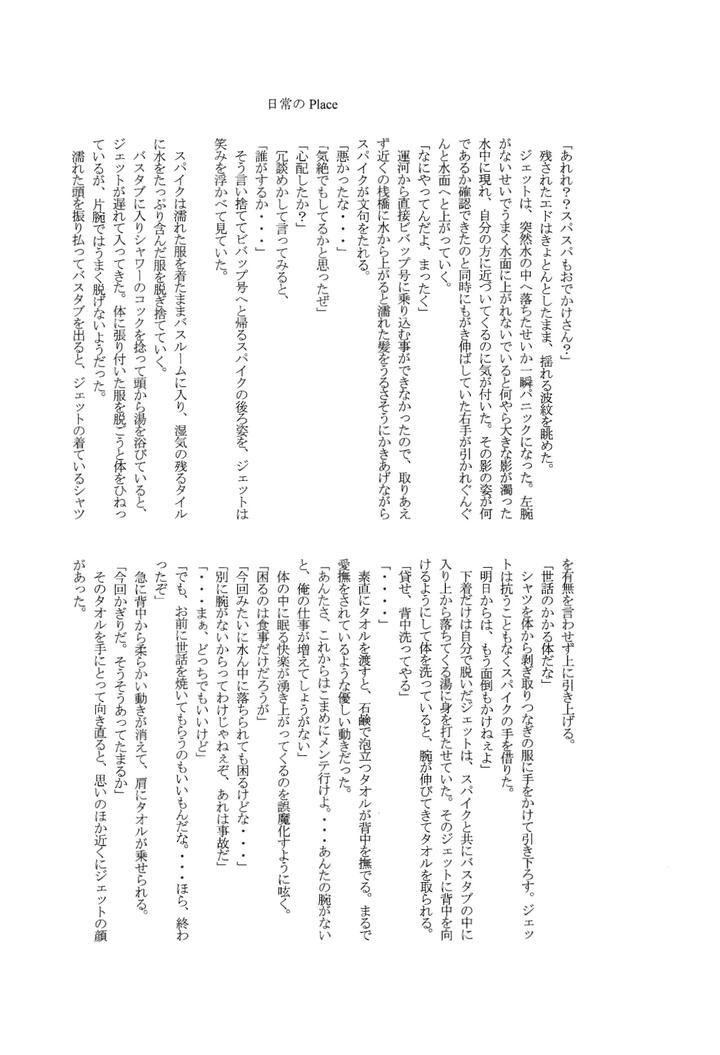 日常の Place
「あれれ？？スパスパもおでかけさん？」
　残されたエドはきょとんとしたまま、揺れる波紋を眺めた。
　ジェットは、突然水の中へ落ちたせいか一瞬パニックになった。左腕
がないせいでうまく水面に上がれないでいると何やら大きな影が濁った
水中に現れ、自分の方に近づいてくるのに気が付いた。その影の姿が何
であるか確認できたのと同時にもがき伸ばしていた右手が引かれぐんぐ
んと水面へと上がっていく。
「なにやってんだよ、まったく」
　運河から直接ビバップ号に乗り込む事ができなかったので、取りあえ
ず近くの桟橋に水から上がると濡れた髪をうるさそうにかきあげながら
スパイクが文句をたれる。
「悪かったな・・・」
「気絶でもしてるかと思ったぜ」
「心配したか？」
　冗談めかして言ってみると、
「誰がするか・・・」
　そう言い捨ててビバップ号へと帰るスパイクの後ろ姿を、ジェットは
笑みを浮かべて見ていた。
　スパイクは濡れた服を着たままバスルームに入り、湿気の残るタイル
に水をたっぷり含んだ服を脱ぎ捨てていく。
　バスタブに入りシャワーのコックを捻って頭から湯を浴びていると、
ジェットが遅れて入ってきた。体に張り付いた服を脱ごうと体をひねっ
ているが、片腕ではうまく脱げないようだった。
　濡れた頭を振り払ってバスタブを出ると、ジェットの着ているシャツ
を有無を言わせず上に引き上げる。
「世話のかかる体だな」
　シャツを体から剥ぎ取りつなぎの服に手をかけて引き下ろす。ジェッ
トは抗うこともなくスパイクの手を借りた。
「明日からは、もう面倒もかけねぇよ」
　下着だけは自分で脱いだジェットは、スパイクと共にバスタブの中に
入り上から落ちてくる湯に身を打たせていた。そのジェットに背中を向
けるようにして体を洗っていると、腕が伸びてきてタオルを取られる。
「貸せ、背中洗ってやる」
「・・・・」
　素直にタオルを渡すと、石鹸で泡立つタオルが背中を撫でる。まるで
愛撫をされているような優しい動きだった。
「あんたさ、これからはこまめにメンテ行けよ。・・・あんたの腕がない
と、俺の仕事が増えてしょうがない」
　体の中に眠る快楽が湧き上がってくるのを誤魔化すように呟く。
「困るのは食事だけだろうが」
「今回みたいに水ん中に落ちられても困るけどな・・・」
「別に腕がないからってわけじゃねぇぞ、あれは事故だ」
「・・・まぁ、どっちでもいいけど」
「でも、お前に世話を焼いてもらうのもいいもんだな。・・・ほら、終わ
ったぞ」
　急に背中から柔らかい動きが消えて、肩にタオルが乗せられる。
「今回かぎりだ。そうそうあってたまるか」
　そのタオルを手にとって向き直ると、思いのほか近くにジェットの顔
があった。